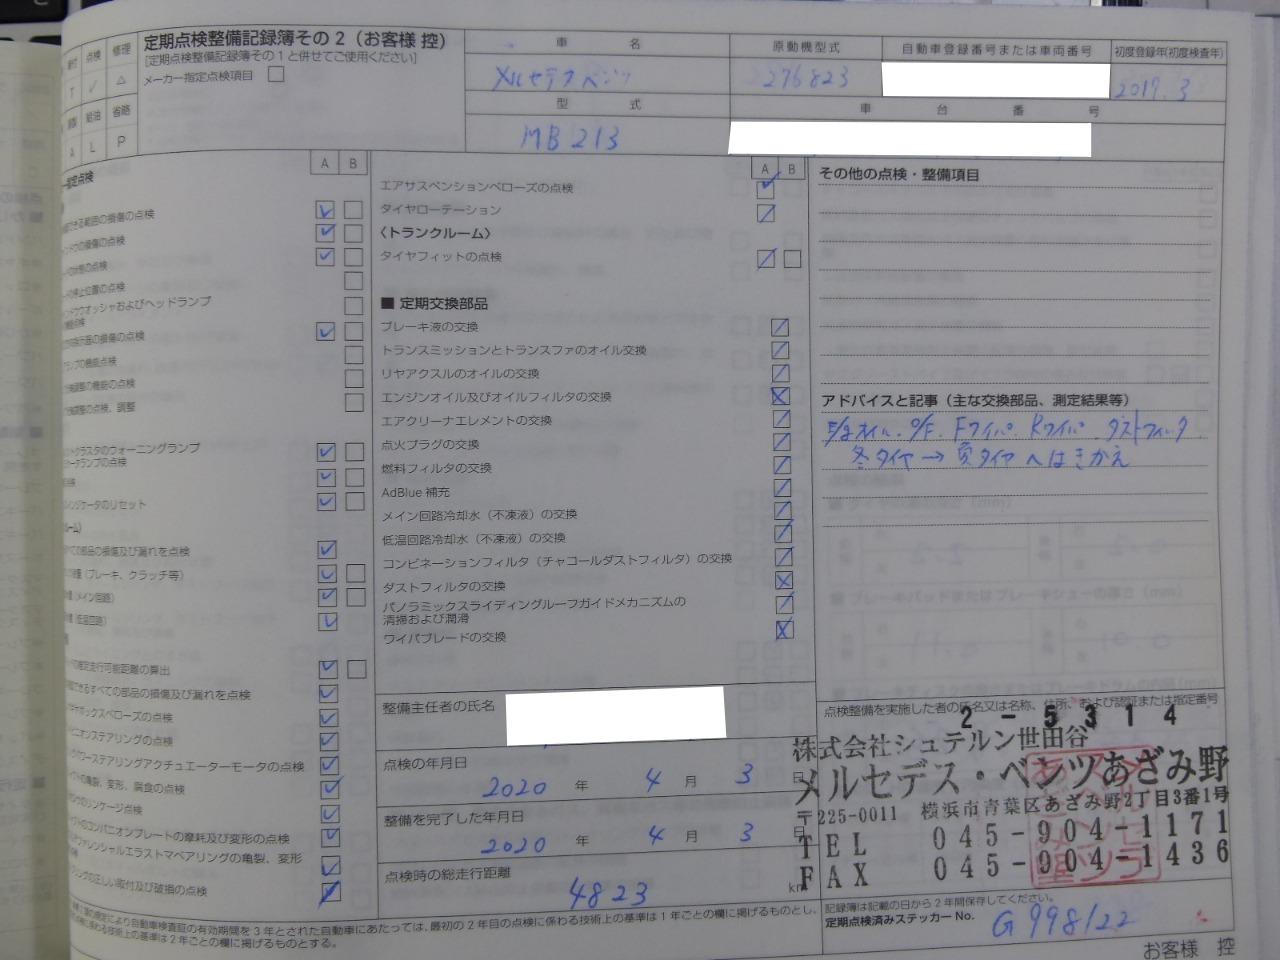 定期点検整備記録簿その2(お客様 控)
[定期点検整備記録簿その1と併せてご使用ください]
メーカー指定点検項目
点検 修理
T ✓ △
給油 省略
A L P
車名
メルセデスベンツ
原動機型式
276823
自動車登録番号または車両番号
初度登録年(初度検査年)
2017.3
型式
MB213
車台番号
A B
できる範囲の損傷の点検
の損傷の点検
の状態の点検
の停止位置の点検
ンドウウオッシャおよびヘッドランプ
の損傷の点検
の機能点検
の機能の点検
の点検、調整
クラスタのウォーニングランプ
ランプの点検
インジケータのリセット
べての部品の損傷及び漏れを点検
(ブレーキ、クラッチ等)
(メイン回路)
(低温回路)
走行可能距離の算出
できるすべての部品の損傷及び漏れを点検
ボックスベローズの点検
ニオンステアリングの点検
ワーステアリングアクチュエーターモータの点検
の亀裂、変形、腐食の点検
のリンケージ点検
のコンパニオンプレートの摩耗及び変形の点検
ァレンシャルエラストマベアリングの亀裂、変形
ングの正しい取付及び破損の点検
A B
エアサスペンションベローズの点検
タイヤローテーション
〈トランクルーム〉
タイヤフィットの点検
■ 定期交換部品
ブレーキ液の交換
トランスミッションとトランスファのオイル交換
リヤアクスルのオイルの交換
エンジンオイル及びオイルフィルタの交換
エアクリーナエレメントの交換
点火プラグの交換
燃料フィルタの交換
AdBlue 補充
メイン回路冷却水(不凍液)の交換
低温回路冷却水(不凍液)の交換
コンビネーションフィルタ(チャコールダストフィルタ)の交換
ダストフィルタの交換
パノラミックスライディングルーフガイドメカニズムの
清掃および潤滑
ワイパブレードの交換
整備主任者の氏名
点検の年月日
2020 年 4 月 3 日
整備を完了した年月日
2020 年 4 月 3 日
点検時の総走行距離
4823 km
その他の点検・整備項目
アドバイスと記事(主な交換部品、測定結果等)
オイル. O/F. Fワイパ. Rワイパ. ダストフィルタ
冬タイヤ→夏タイヤへはきかえ
点検整備を実施した者の氏名又は名称、住所、および認証または指定番号
2-5314
株式会社シュテルン世田谷
メルセデス・ベンツあざみ野
〒225-0011 横浜市青葉区あざみ野2丁目3番1号
TEL 045-904-1171
FAX 045-904-1436
記録簿は記載の日から2年間保存してください。
定期点検済みステッカー No. G998122
の規定により自動車検査証の有効期間を3年とされた自動車にあたっては、最初の2年目の点検に係わる技術上の基準は1年ごとの欄に掲げるものとし、
に係わる技術上の基準は2年ごとの欄に掲げるものとする。
お客様 控